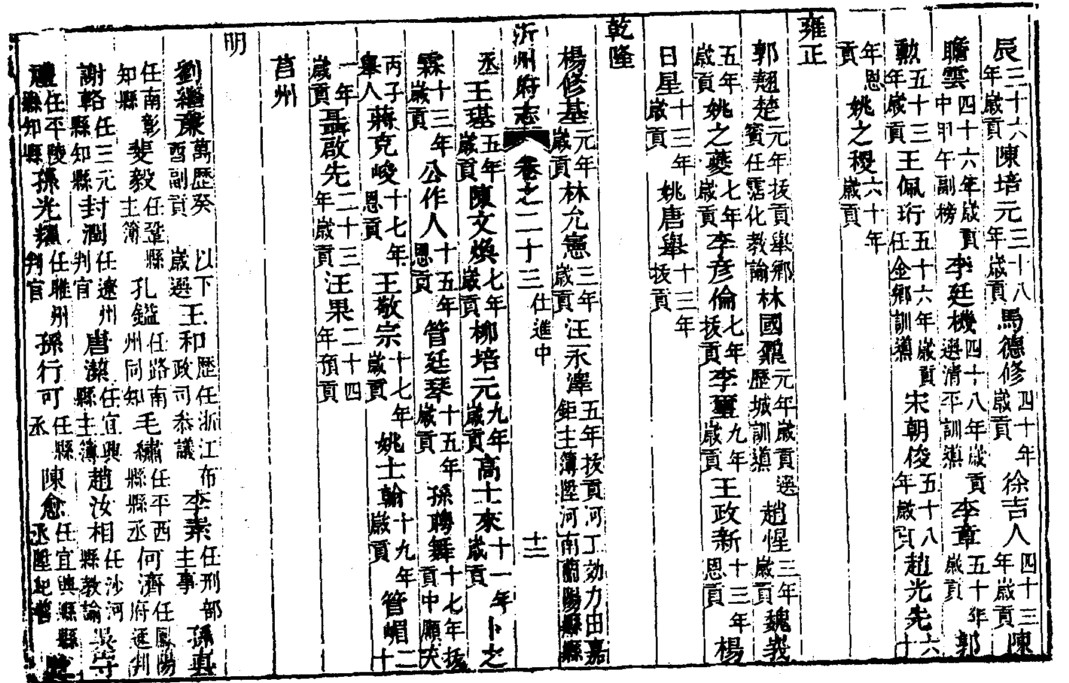 辰三十六年歲貢陳培元三十八年歲貢馬德修四十年歲貢徐吉人四十三年歲貢陳
瞻雲四十六年歲貢中甲午副榜李廷機四十八年歲貢選清平訓導李章五十年歲貢郭
勲五十三年歲貢王佩珩五十六年歲貢任金鄉訓導宋朝俊五十八年歲貢趙光先六十
年恩貢姚之稷六十年歲貢
雍正
郭翹楚元年拔貢舉鄉賓任霑化教諭林國鼐元年歲貢選歷城訓導趙惺三年歲貢魏義
五年歲貢姚之夔七年歲貢李彥倫七年拔貢李璽九年歲貢王政新十三年恩貢楊
日星十三年歲貢姚唐舉十三年拔貢
乾隆
楊修基元年歲貢林允憲三年歲貢汪永澤五年拔貢河工効力由嘉鉅主簿陞河南蘭陽縣縣
沂州府志 卷之二十三 仕進中 十二
丞王瑾五年歲貢陳文煥七年歲貢柳培元九年歲貢高士來十一年歲貢卜之
霖十三年歲貢公作人十五年恩貢管廷琴十五年歲貢孫聘舞十七年拔貢中順天
丙子舉人蔣克峻十七年恩貢王敬宗十七年歲貢姚士翰十九年歲貢管嵋二十
一年歲貢聶啟先二十三年歲貢汪果二十四年預貢
莒州
明
劉繼業萬歷癸酉副貢以下歲選王和歷任浙江布政司叅議李素任刑部主事孫真
任南彰知縣裴毅任鞏縣主簿孔鎰任路南州同知毛繡任平西縣縣丞何濟任鳳陽府通判
謝輅任三元縣知縣封潤任遼州判官唐滦任宜興縣主簿趙汝相任沙河縣教諭吳守
任平陵縣知縣孫光輝任雕州判官孫行可任縣丞陳愈任宜興縣縣丞陞